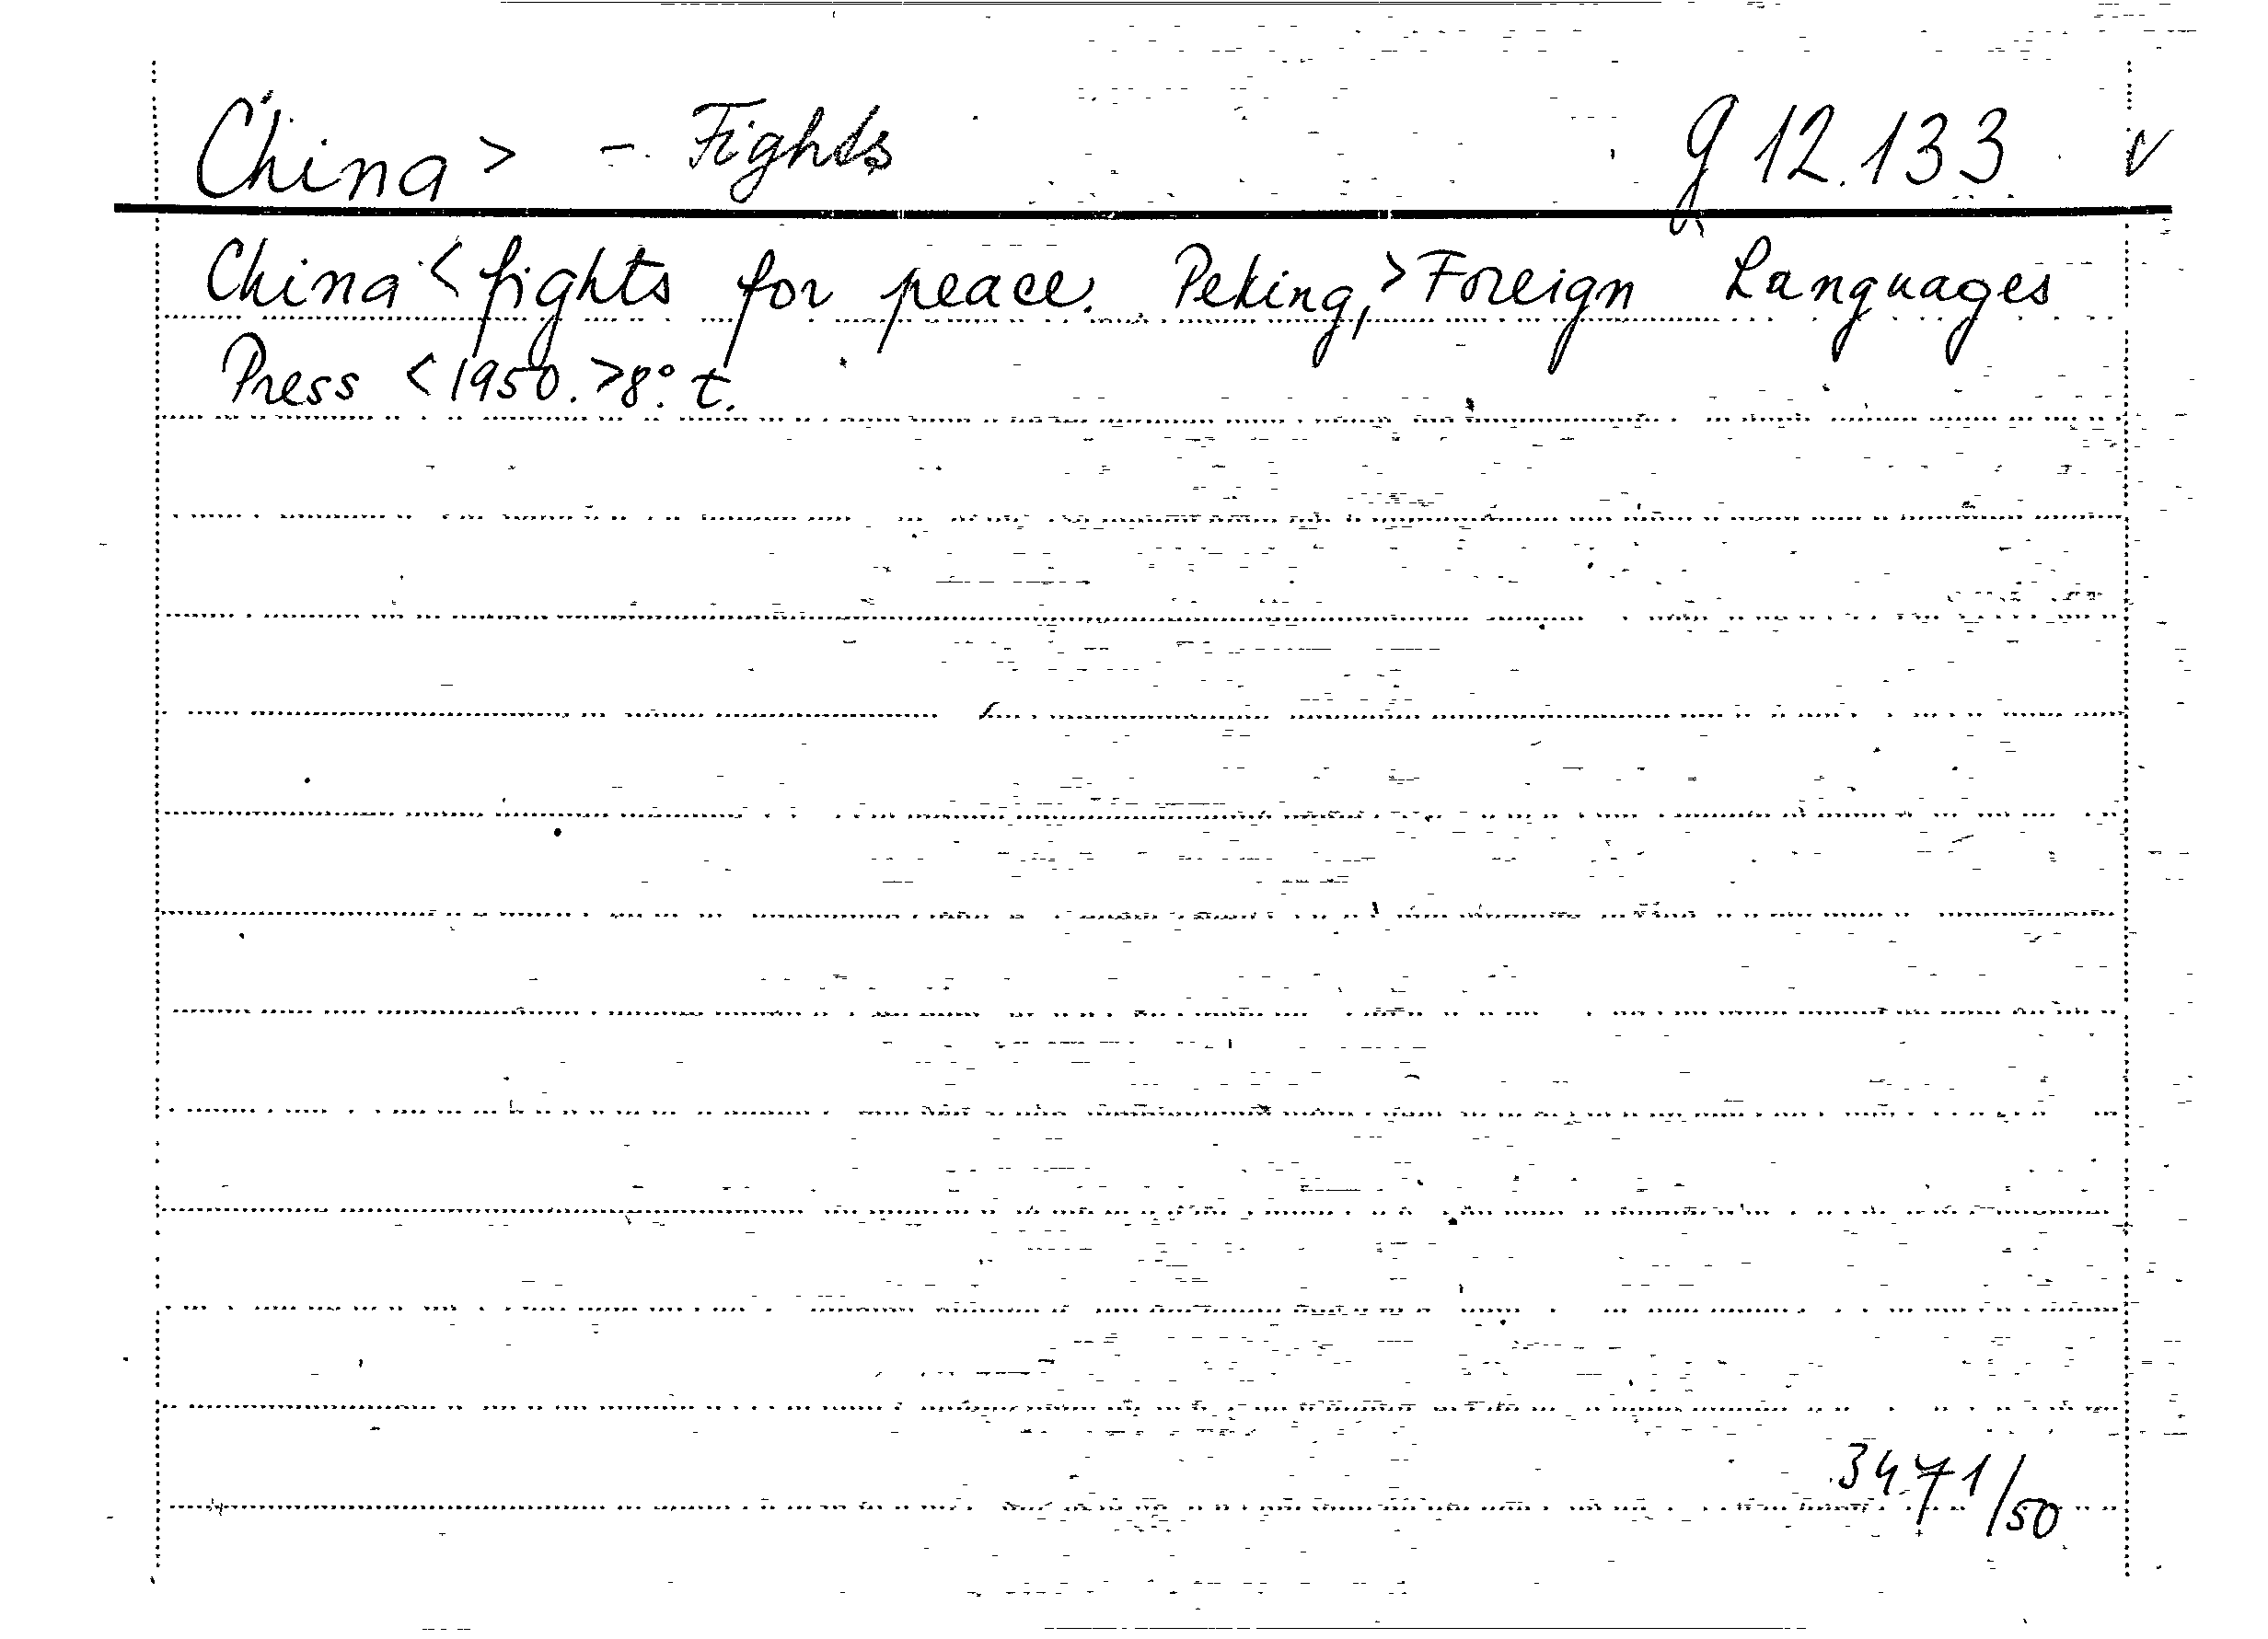 China> - Fights g 12.133 v
China < fights for peace. Peking, > Foreign Languages
Press < 1950. > 8° t.
3471/50